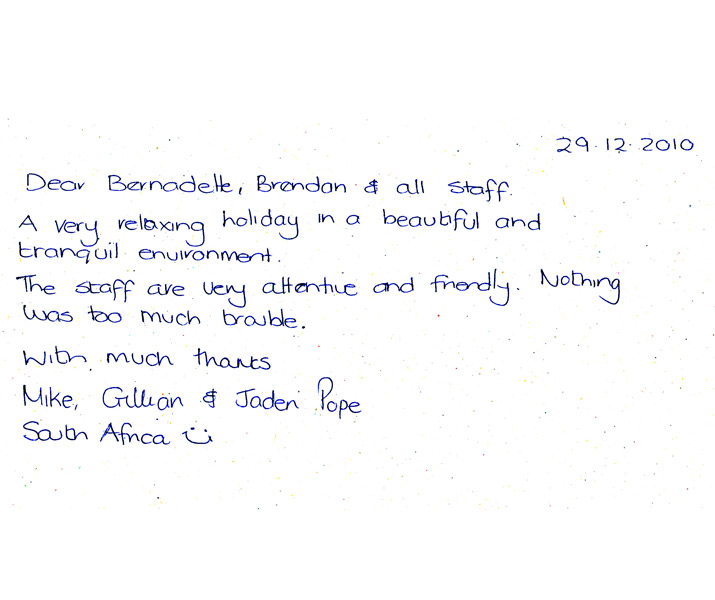 29.12.2010
Dear Bernadette, Brendan & all staff.
A very relaxing holiday in a beautiful and
tranquil environment.
The staff are very attentive and friendly. Nothing
was too much trouble.
With much thanks
Mike, Gillian & Jaden Pope
South Africa ☺